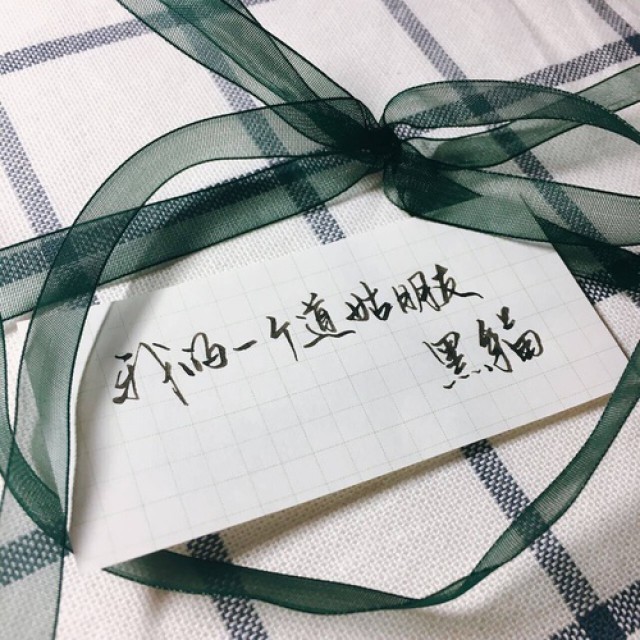 我的一个道姑朋友
黑貓